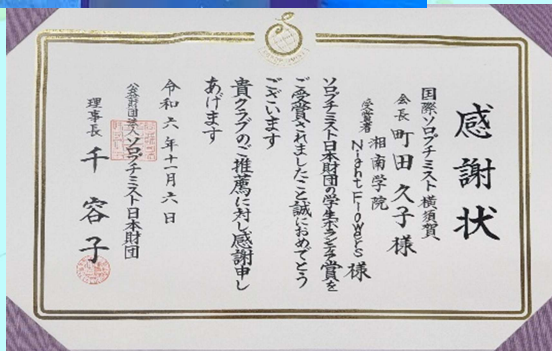 感謝状
国際ソロプチミスト横須賀
会長 町田久子様
受賞者 湘南学院
NightFlowers様
ソロプチミスト日本財団の学生ボランティア賞を
ご受賞されましたこと誠におめでとう
ございます
貴クラブのご推薦に対し感謝申し
あげます
令和六年十一月六日
公益財団法人ソロプチミスト日本財団
理事長 千容子